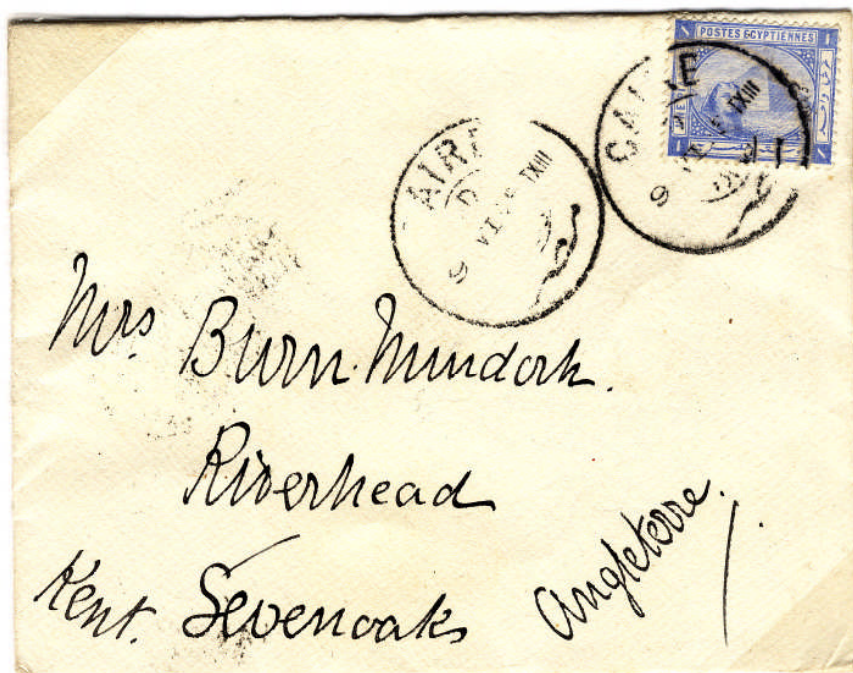 POSTES EGYPTIENNES
CAIRE
AIRE
TXIII
TXIII
Mrs Burn-Murdoch.
Riverhead
Kent. Sevenoaks
Angleterre.